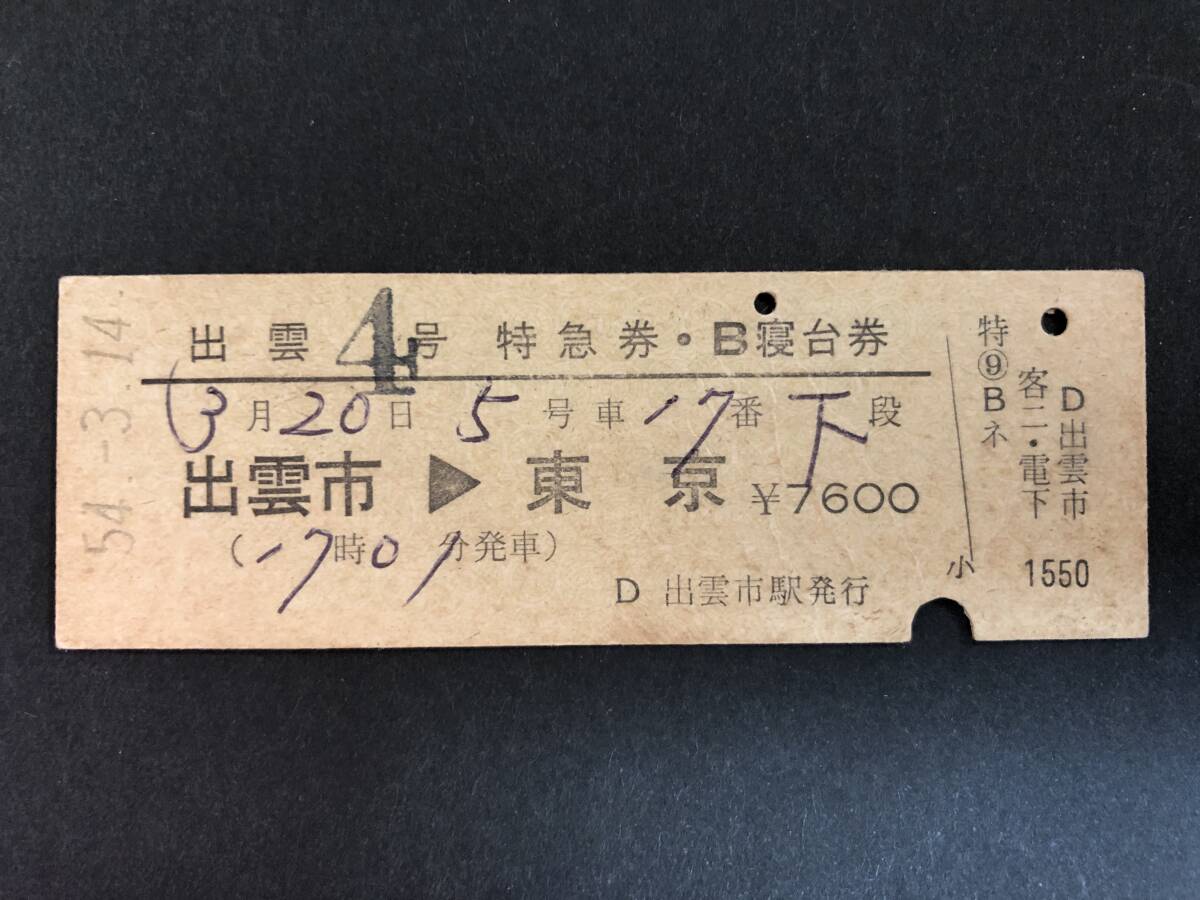 54.-3.14.
出雲4号 特急券・B寝台券
3月20日 5号車 17番下段
出雲市▶東京 ¥7600
(17時01分発車)
D 出雲市駅発行
小
特⑨Bネ
客ニ・電下
D出雲市
1550